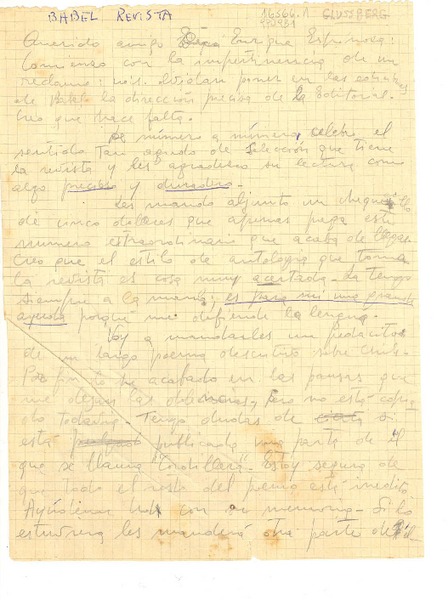 BABEL REVISTA
16566.A GLUSSBERG
Querido amigo Enrique Espinosa:
Comienzo con la impertinencia de un
reclamo: uds. olvidan poner en las
de Babel la dirección precisa de la Editorial.
Creo que hace falta.
De número a número, celebro el
sentido tan agudo de selección que tiene
la revista y les agradezco su lectura como
algo precioso y duradero.
Les mando adjunto un
de cinco dólares que apenas paga este
número extraordinario que acaba de llegar.
Creo que el estilo de antología que toma
la revista es cosa muy acertada. La tengo
siempre a la mano; es para mí una grande
ayuda porque me defiende la lengua.
Voy a mandarles un pedacito
de un largo poema descriptivo sobre Chile.
Por fin lo he acabado en las pausas que
me dejan las, pero no está
todavía. Tengo dudas de si
está publicada una parte de él
que se llama "Cordillera". Estoy segura de
que todo el resto del poema está inédito
Ayúdenme Uds con su memoria. Si lo
estuviera les mandaré otra parte de él.